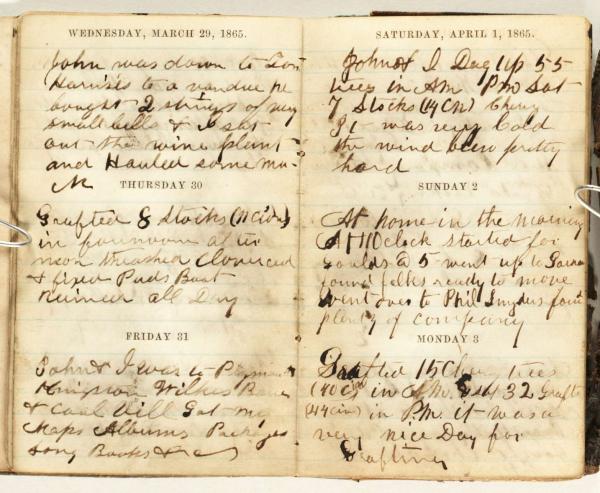 WEDNESDAY, MARCH 29, 1865.
John was down to
Harrises to a vandue he
bought 2 strings of
small bells & I sat
out the wine plant
and Hauled some mu-
ck
THURSDAY 30
Grafted 8 Stocks
in fournoon after
noon thrashed Cloverced
& fixed Pads Boat
all Day
FRIDAY 31
John & I was to
Wilkes Barre
& Coal Vill Got my
Maps Albums Packages
Song Books &
SATURDAY, APRIL 1, 1865.
John & I Dug Up 55
trees in AM PM Sat
7 Stocks Chery
It was very Cold
the wind blew pretty
hard
SUNDAY 2
At home in the morning
At 11 Oclock started for
Goulds @ 5 went up to
found folks ready to move
went over to Phil Snyders found
plenty of company
MONDAY 3
Grafted 15 Chery trees
in AM. 32 Grafts
in PM. it was a
very nice Day for
Grafting